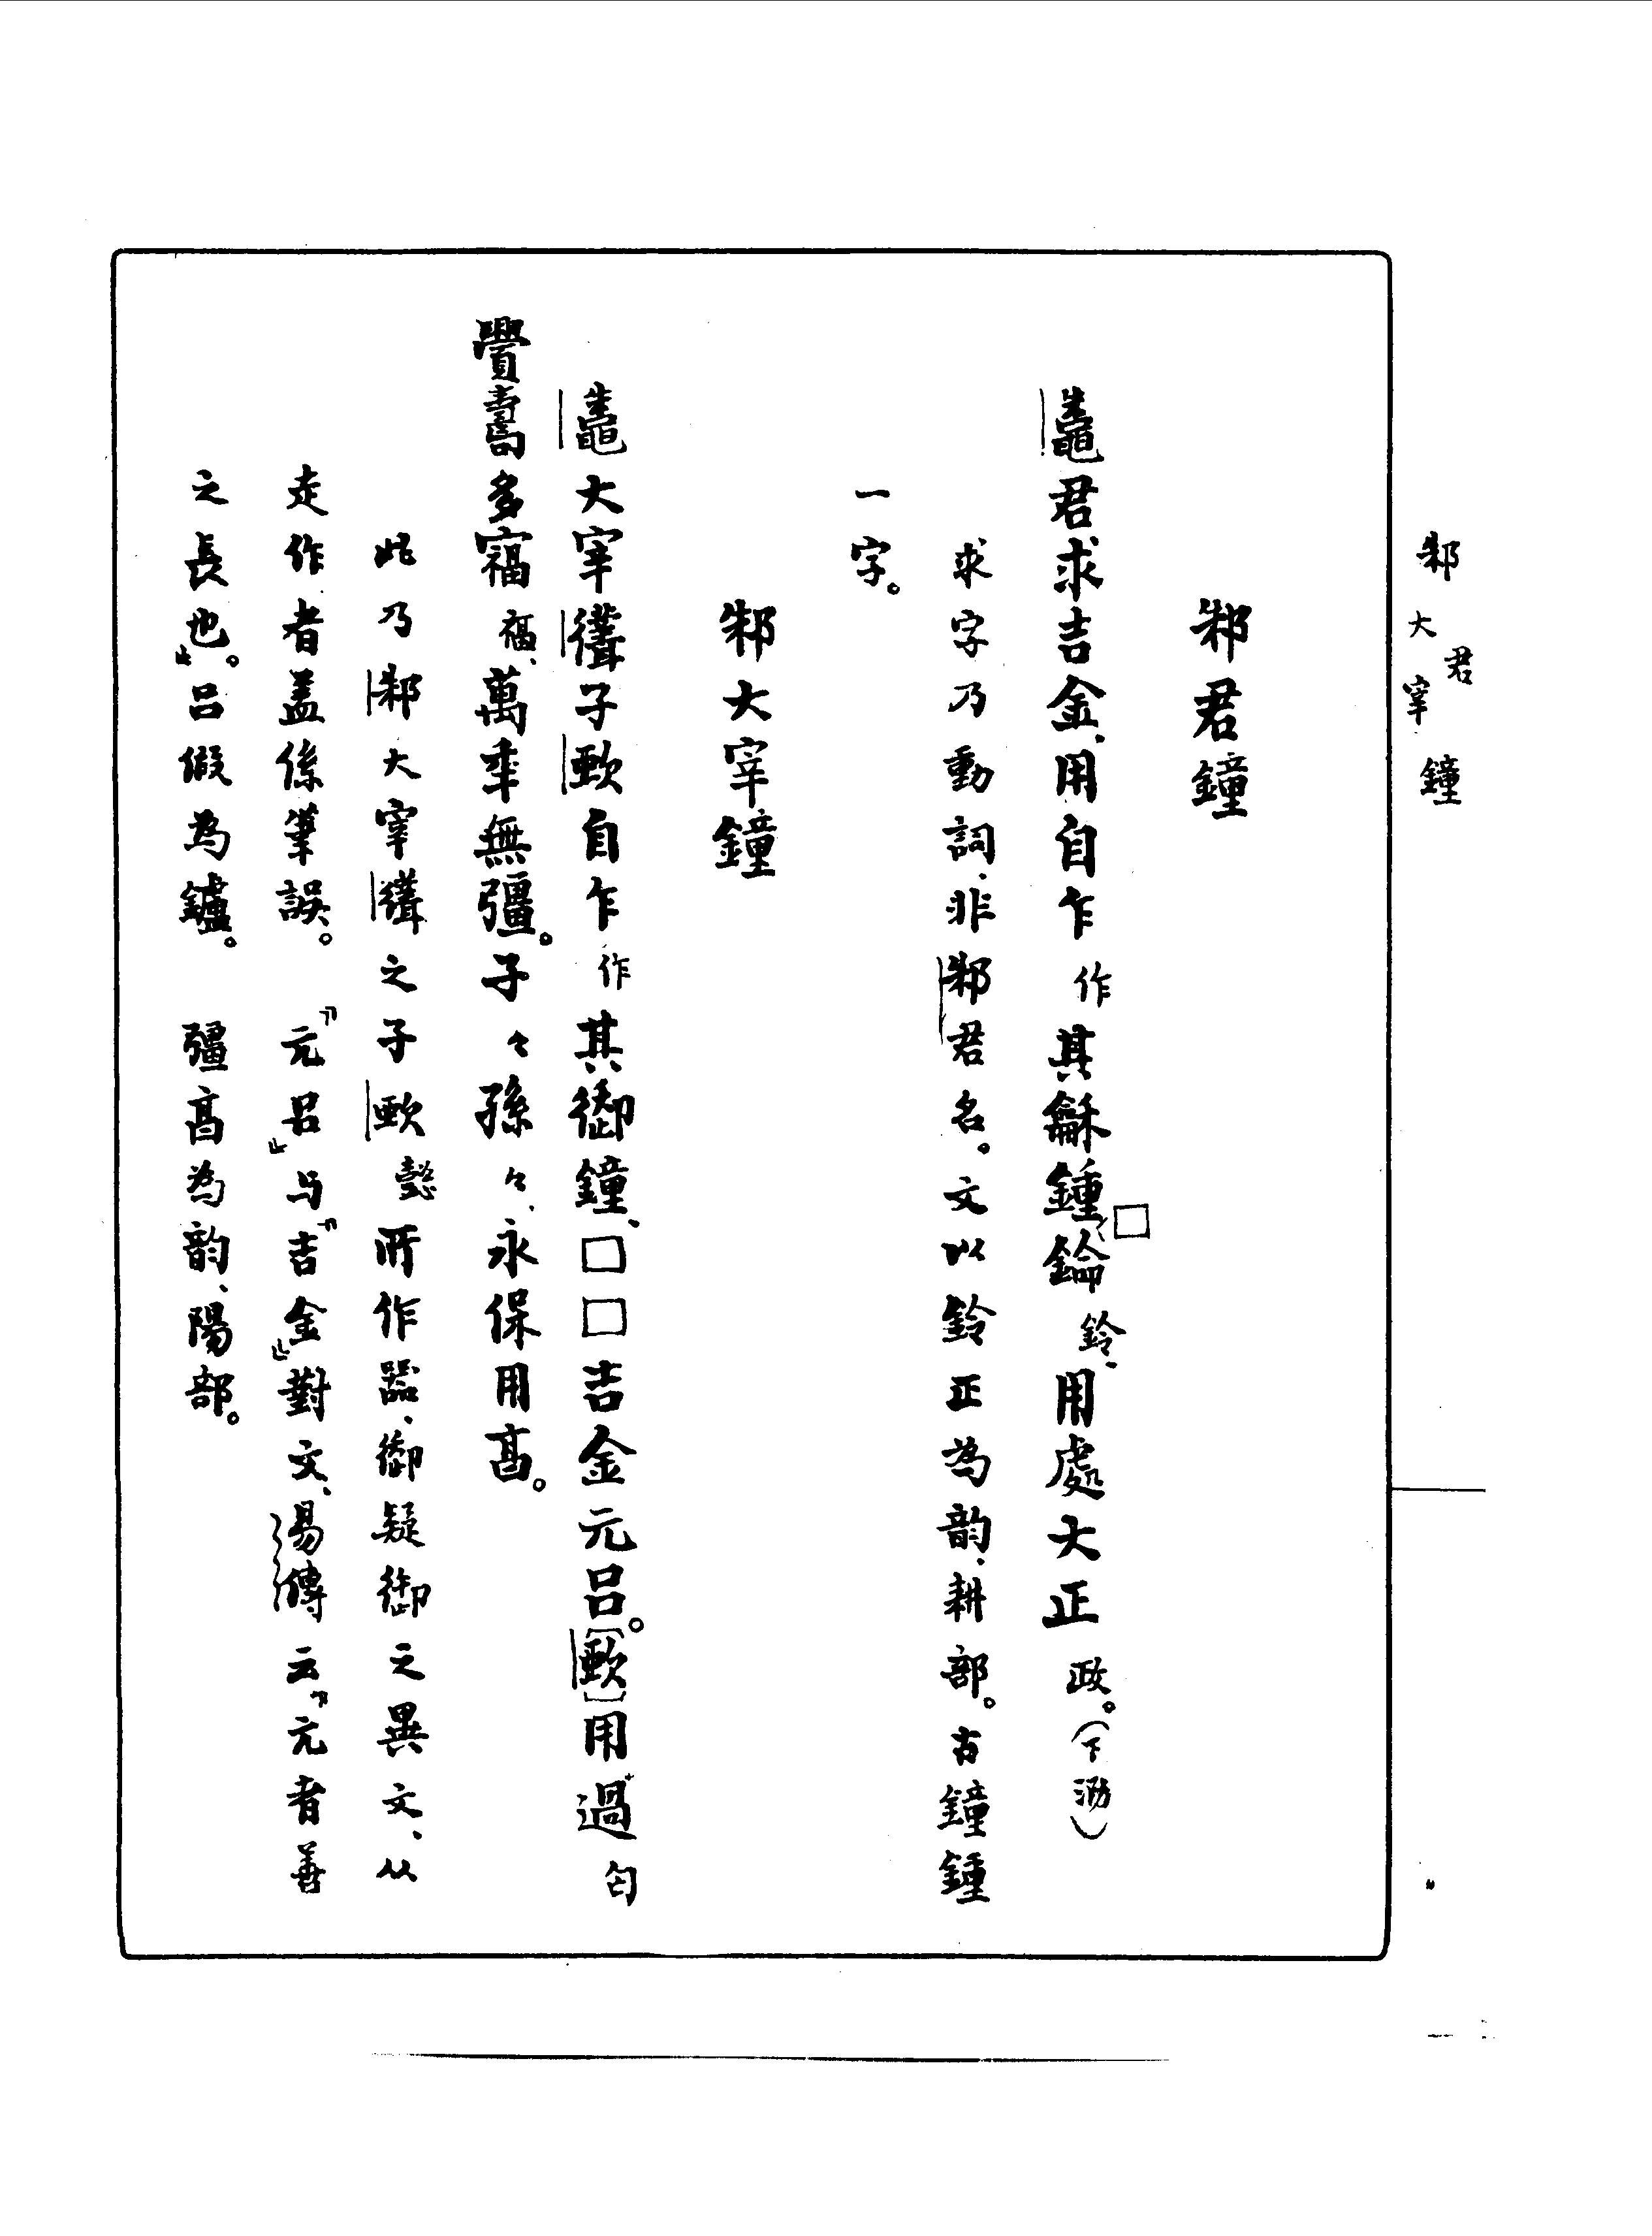 邾君 大宰 鐘
邾君鐘
鼄君求吉金、用自乍作其龢鍾□鈴、用處大正政。(下泐)
求字乃動詞、非邾君名。文以鈴正為韵、耕部。古鐘鍾
一字。
邾大宰鐘
鼄大宰子自乍作其御鐘、□□吉金元呂。〔〕用過匄
眉壽多福福、萬年無彊。子々孫々、永保用亯。
此乃邾大宰之子懿所作器、御疑御之異文、从
走作者盖係筆誤。『元呂』与『吉金』對文、易傳云『元者善
之長也』。呂假為鑪。 彊亯為韵、陽部。